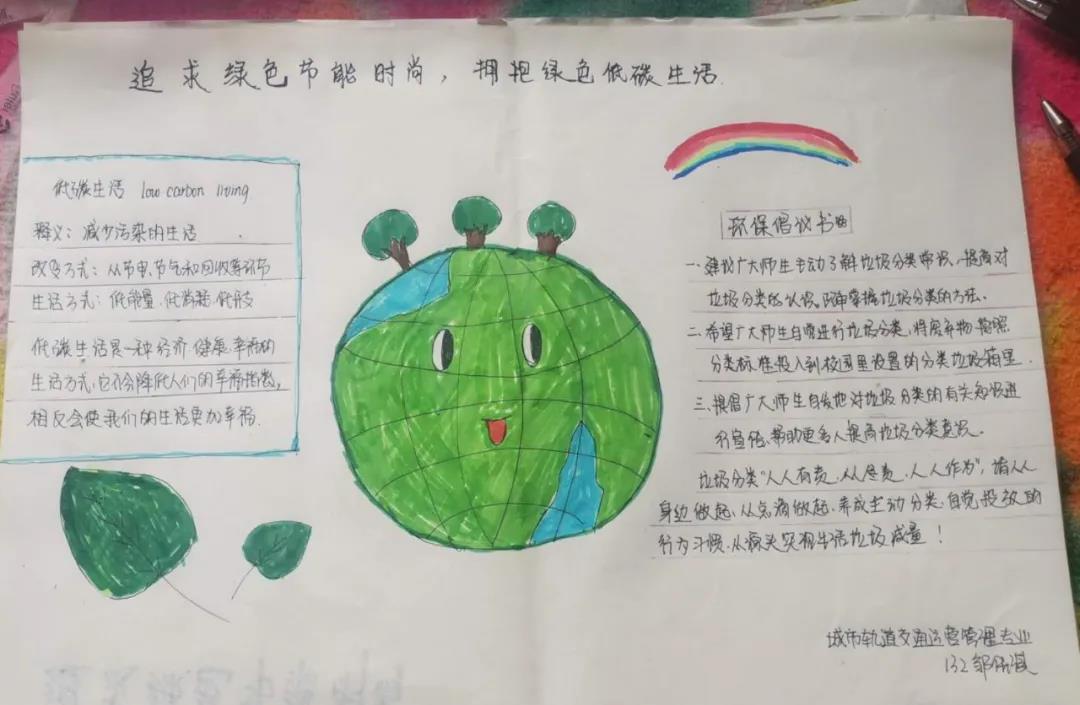 追求绿色节能时尚，拥抱绿色低碳生活.
低碳生活 low carbon living
释义：减少污染的生活
改变方式：从节电、节气和回收等环节
生活方式：低能量、低消耗、低开支
低碳生活是一种经济、健康、幸福的
生活方式，它不会降低人们的幸福指数，
相反会使我们的生活更加幸福.
环保倡议书
一、建议广大师生主动了解垃圾分类常识，提高对
垃圾分类的认识，掌握垃圾分类的方法。
二、希望广大师生自觉进行垃圾分类，将废弃物按照
分类标准投入到校园里设置的分类垃圾箱里.
三、提倡广大师生自发地对垃圾分类的有关知识进
行宣传，帮助更多人提高垃圾分类意识。
垃圾分类“人人有责，人人尽责，人人作为”，请从
身边做起、从点滴做起，养成主动分类、自觉投放的
行为习惯，从源头实现生活垃圾减量！
城市轨道交通运营管理专业
132 邹